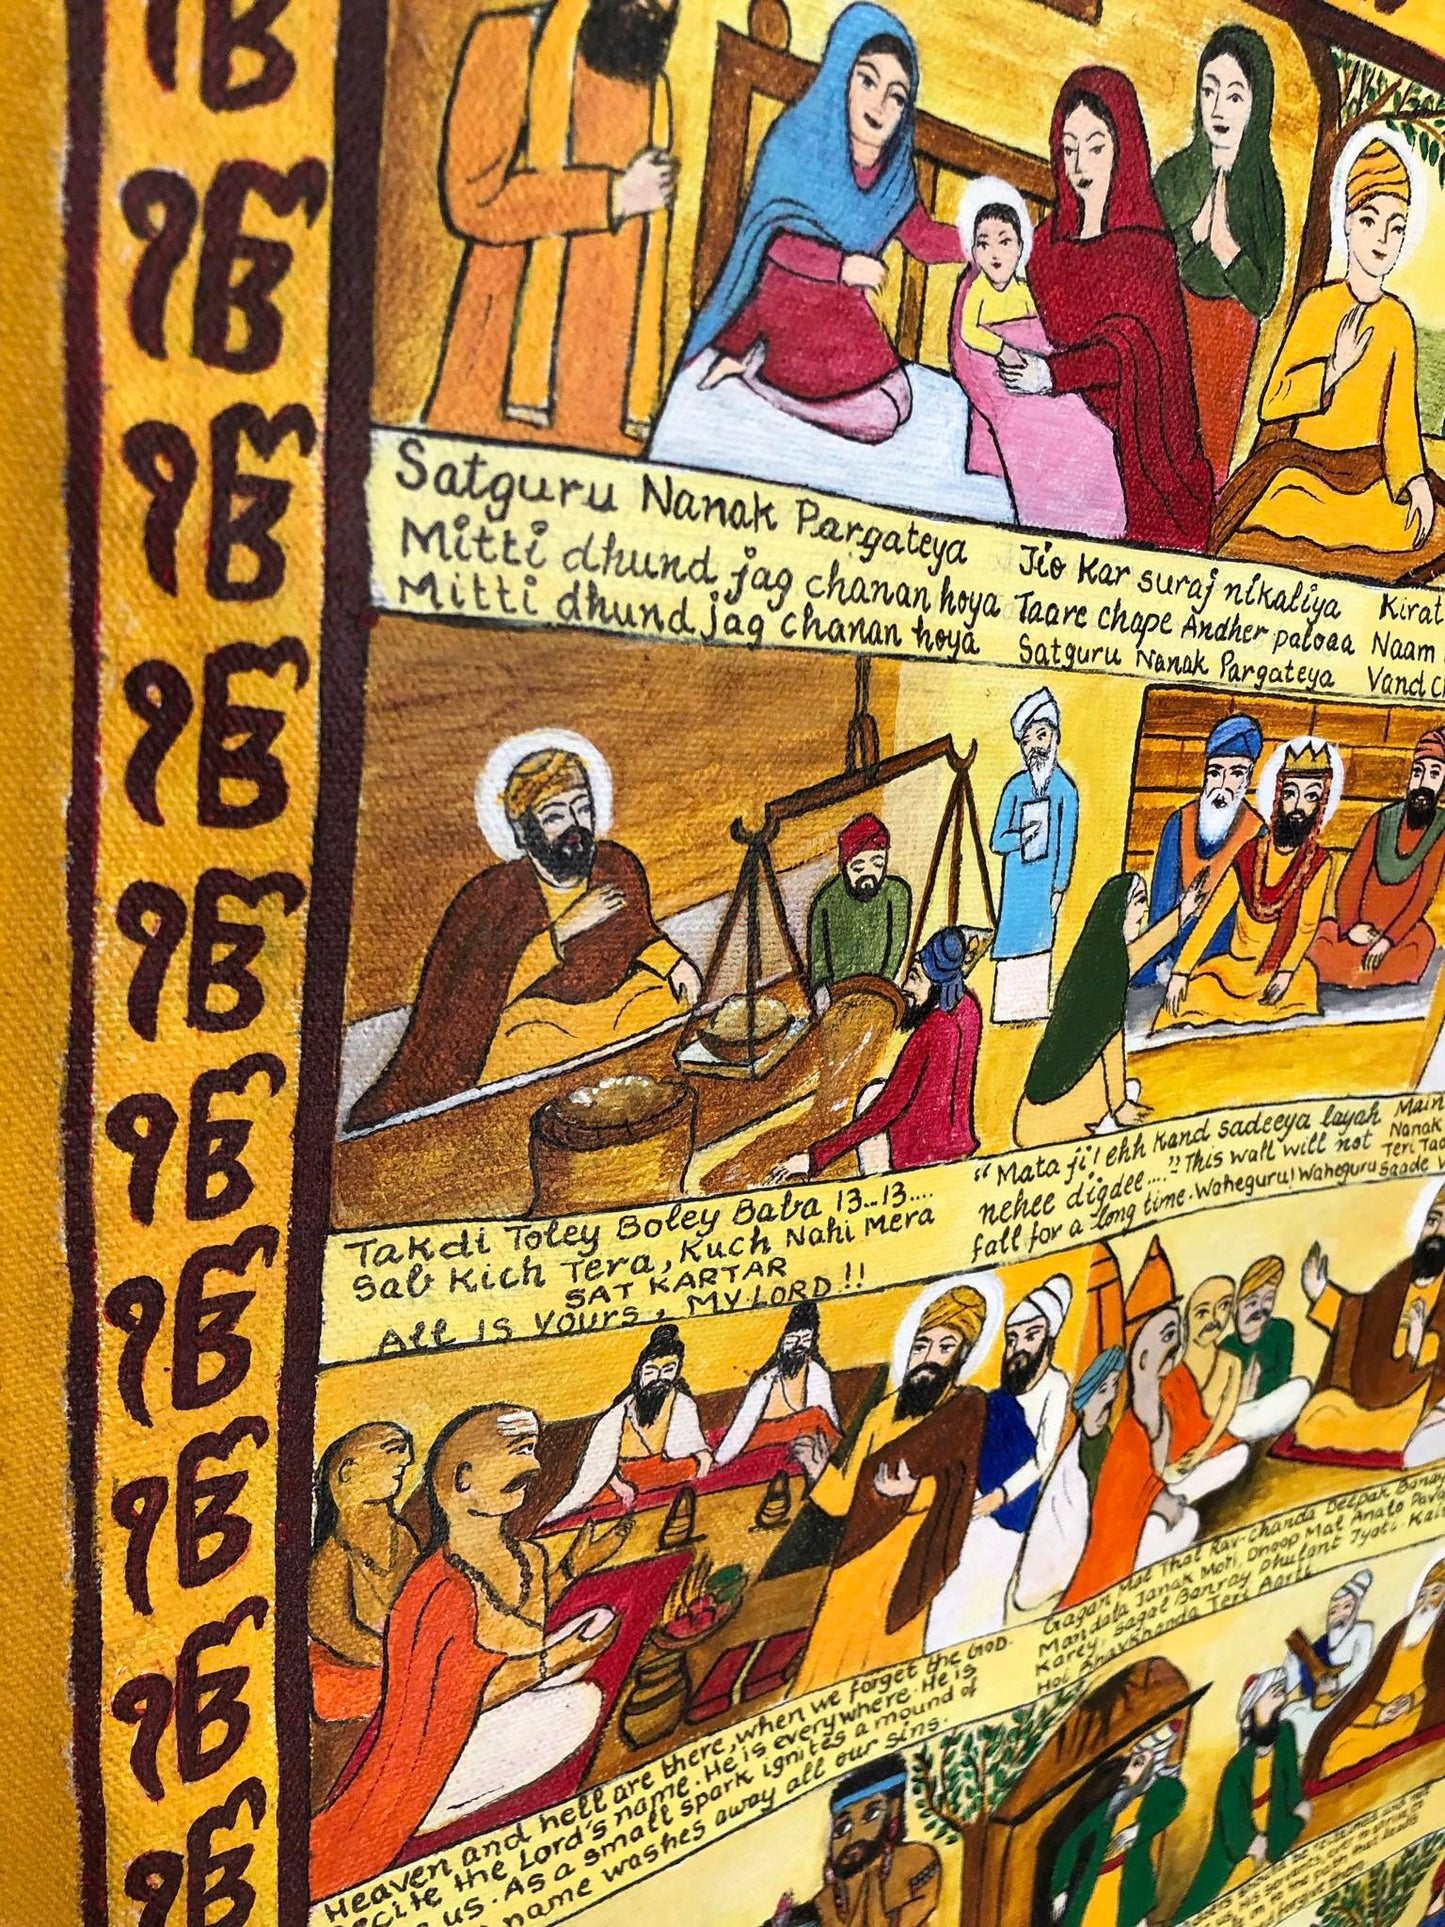 ੴ
ੴ
ੴ
ੴ
ੴ
ੴ
ੴ
ੴ
ੴ
ੴ
Satguru Nanak Pargateya
Mitti dhund jag chanan hoya
Mitti dhund jag chanan hoya
Jio Kar suraj nikaliya
Taare chape Andher paloaa
Satguru Nanak Pargateya
Kirat
Naam
Vand
Takdi Toley Boley Baba 13...13....
Sab Kich Tera, Kuch Nahi Mera
SAT KARTAR
All is Yours, MY LORD !!
"Mata ji! ehh Kand sadeeya layah
nehee digdee...." This wall will not
fall for a long time. Waheguru! Waheguru
Main
Nanak
Teri
Saade
Heaven and hell are there, when we forget the GOD.
recite the Lord's name. He is everywhere. He is
us. As a small spark ignites a mound of
name washes away all our sins.
Gagan Mai Thal Rav-chanda Deepak
Mandala Janak Moti, Dhoop Mal Anlo
Karey, Sagal Banray Phulant Jyoti.
Hoi BhavKhanda Teri Aarti